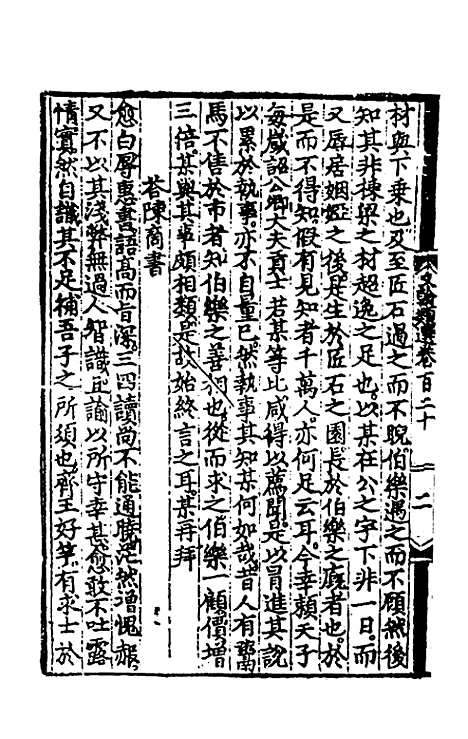 材與下乗也及至匠石過之而不睨伯樂遇之而不顧然後
知其非棟梁之材超逸之足也以某在公之宇下非一日而
又辱居姻婭之後是生於匠石之園長於伯樂之廄者也於
是而不得知假有見知者千萬人亦何足云耳今幸賴天子
毎歲詔公卿大夫貢士若某等比咸得以薦聞是以冒進其說
以累於執事亦不自量已然執事其知某何如哉昔人有鬻
馬不售於市者知伯樂之善相也從而求之伯樂一顧價增
三倍某與其事頗相類是故始終言之耳某再拜
荅陳商書
愈白辱惠書語高而旨深三四讀尚不能通曉茫然增愧赧
又不以其淺弊無過人智識且諭以所守幸甚愈敢不吐露
情實然自識其不足補吾子之所須也齊王好竽有求士於
文論類選卷百二十
二